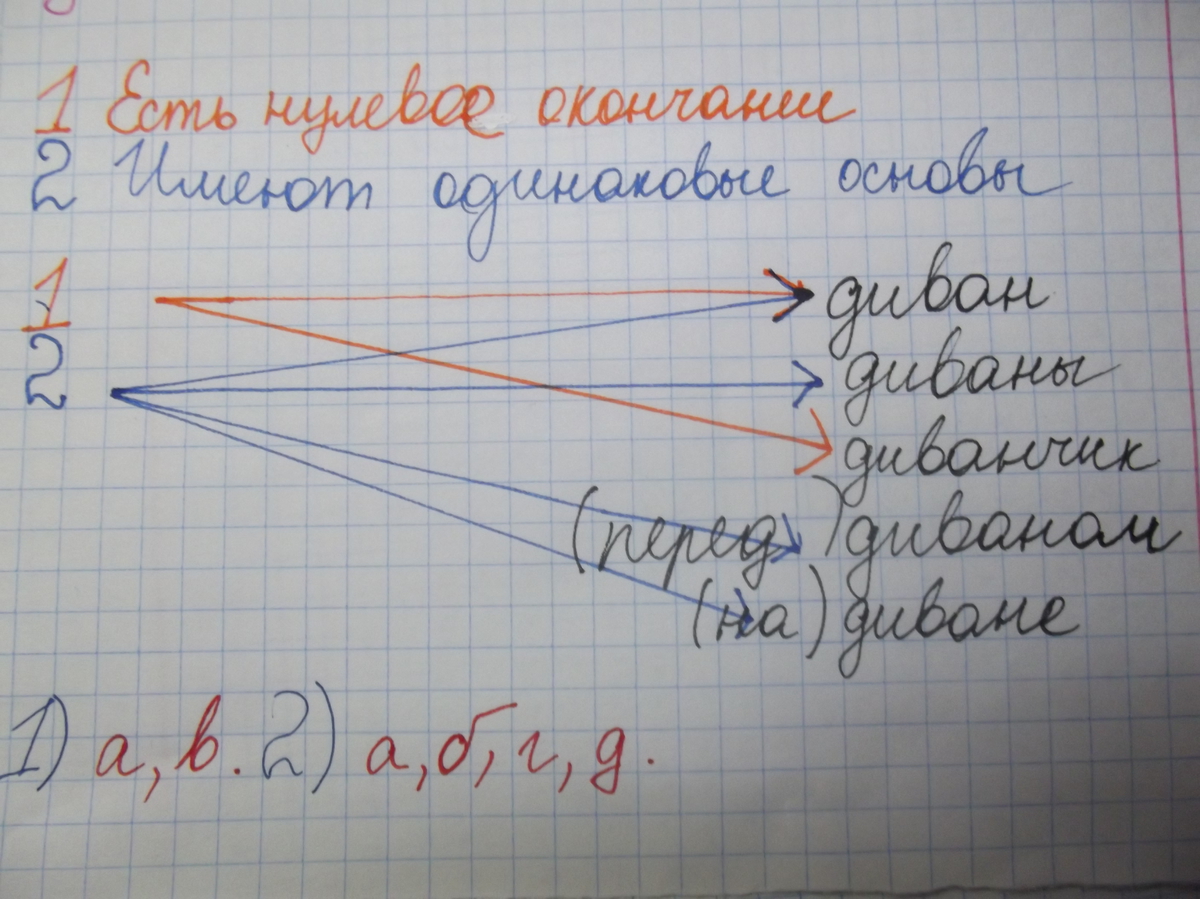 1 Есть нулевое окончание
2 Имеют одинаковые основы
1 диван
2 диваны
диванчик
(перед) диваном
(на) диване
1) а, в. 2) а, б, г, д.